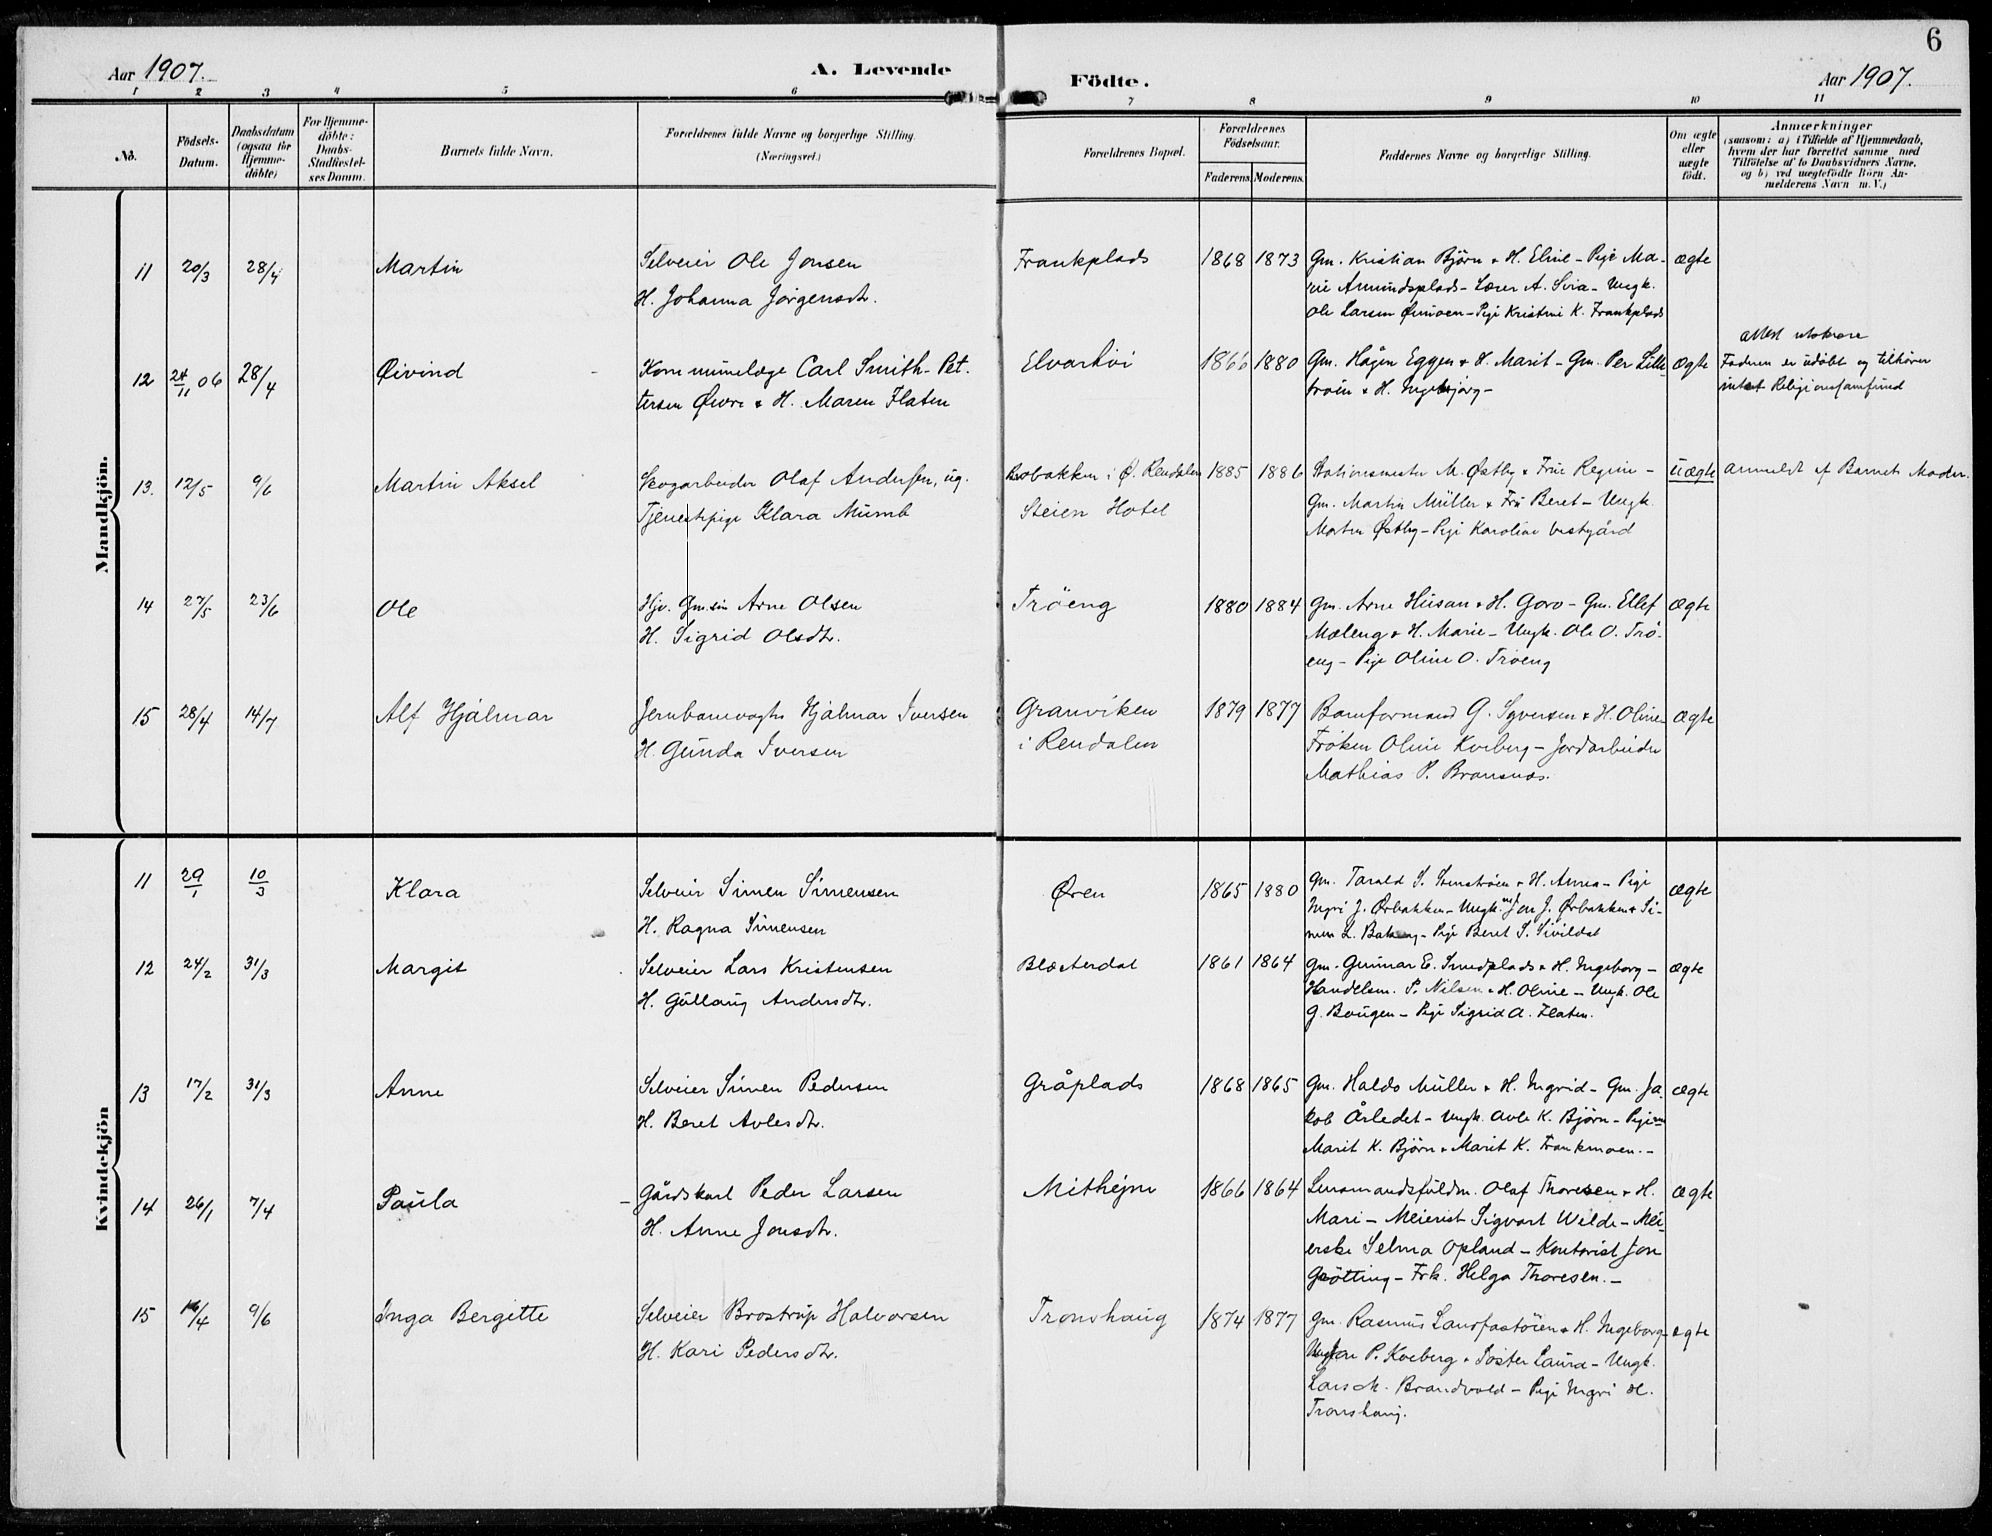 6
Aar 1907. A. Levende Födte. Aar 1907.
1 2 3 4 5 6 7 8 9 10 11
No.
Födsels-
Datum.
Daabsdatum
(ogsaa for
Hjemme-
döbte)
For Hjemme-
döbte:
Daabs-
Stadfestel-
ses Datum.
Barnets fulde Navn.
Forældrenes fulde Navne og borgerlige Stilling.
(Næringsvei.)
Forældrenes Bopæl.
Forældrenes
Födselsaar.
Faderens Moderens.
Faddernes Navne og borgerlige Stilling.
Om ægte
eller
uægte
födt.
Anmærkninger
(saasom: a) i Tilfælde af Hjemmedaab,
hvem der har forrettet samme med
Tilföielse af to Daabsvidners Navne,
og b) ved uægtefödte Börn An-
melderens Navn m. V.)
Mandkjön.
11 20/3 28/4 Martin
Selveier Ole Jonsen
H. Johanna Jørgensdtr.
Frankplads 1868 1873
Gm. Kristian Bjørn & H. Eline - Pige Ma-
rie Amundsplads - Lærer A. Svia - Ungk.
Ole Larsen Øvmoen - Pige Kristine K. Frankplads
ægte
12 24/11 06 28/4 Øivind
Kommunelæge Carl Smith-Pet-
tersen Øwre & H. Maren Flaten
Elvarhöi 1866 1880
Gm. Hågen Eggen & H. Marit - Gm. Per Lille-
trøen & H. Ingebjörg -
ægte
Faderen er udøbt og tilhører
intet Religionssamfund
13. 12/5 9/6 Martin Aksel
Skogarbeider Olaf Andersen, ug.
Tjenestepige Klara Mumb
i Ø. Rendalen
Steien Hotel
1885 1886
Stationsmester M. Østby & Frue Regine -
Gm. Martin Müller & Fru Beret - Ungk.
Martin Østby - Pige Karoline Vestgård
uægte
anmeldt af Barnets Moder.
14 27/5 23/6 Ole
Hjv. Gm.sön Arne Olsen
H. Sigrid Olsdtr.
Tröeng 1880 1884
Gm. Arne Husan & H. Goro - Gm. Ellef
Mæleng & H. Marie - Ungk. Ole O. Trö-
eng - Pige Oline O. Tröeng
ægte
15 28/4 14/7 Alf Hjalmar
Jernbanevogter Hjalmar Iversen
H. Gunda Iversen
Granviken
i Rendalen
1879 1877
Baneformand G. Syversen & H. Oline -
Frøken Oline Kveberg - Jordarbeider
Mathias P. Bransnes.
ægte
Kvindekjön
11 29/1 10/3 Klara
Selveier Simen Simensen
H. Ragna Simensen
Øren 1865 1880
Gm. Tarald S. Stenströen & H. Anna - Pige
Ingri J. Ørbakken - Ungk. Jon J. Ørbakken & Si-
men L. - Pige Beret S. Sivildal
ægte
12 24/2 31/3 Margit
Selveier Lars Kristensen
H. Gullaug Andersdtr.
Blæsterdal 1861 1864
Gm. Gunnar E. Smedplads & H. Ingeborg -
Handelsm. P. Nilsen & H. Oline - Ungk. Ole
G. Bougen - Pige Sigrid A. Flaten.
ægte
13 17/2 31/3 Anne
Selveier Simen Pedersen
H. Beret Avlesdtr.
Gråplads 1868 1865
Gm. Haldo Müller & H. Ingrid - Gm. Ja-
kob Årledet - Ungk. Avle K. Bjørn - Pigerne
Marit K. Bjørn & Marit K. Frankmoen. -
ægte
14 26/1 7/4 Paula
Gårdskarl Peder Larsen
H. Anne Jonsdtr.
Mithejm 1866 1864
Lensmandsfuldm. Olaf Thoresen & H.
Mari - Meierist Sigvart Welde - Mei-
erske Selma Opland - Kontorist Jon
Grötting - Frk. Helga Thoresen. -
ægte
15 14/4 9/6 Inga Bergitte
Selveier Brostrup Halvorsen
H. Kari Pedersdtr.
Tronshaug 1874 1877
Gm. Rasmus & H. Ingeborg -
Ungk. Jon P. Kveberg & Søster Laura - Ungk.
Lars M. Brandvold - Pige Ingri H.
Tronshaug.
ægte